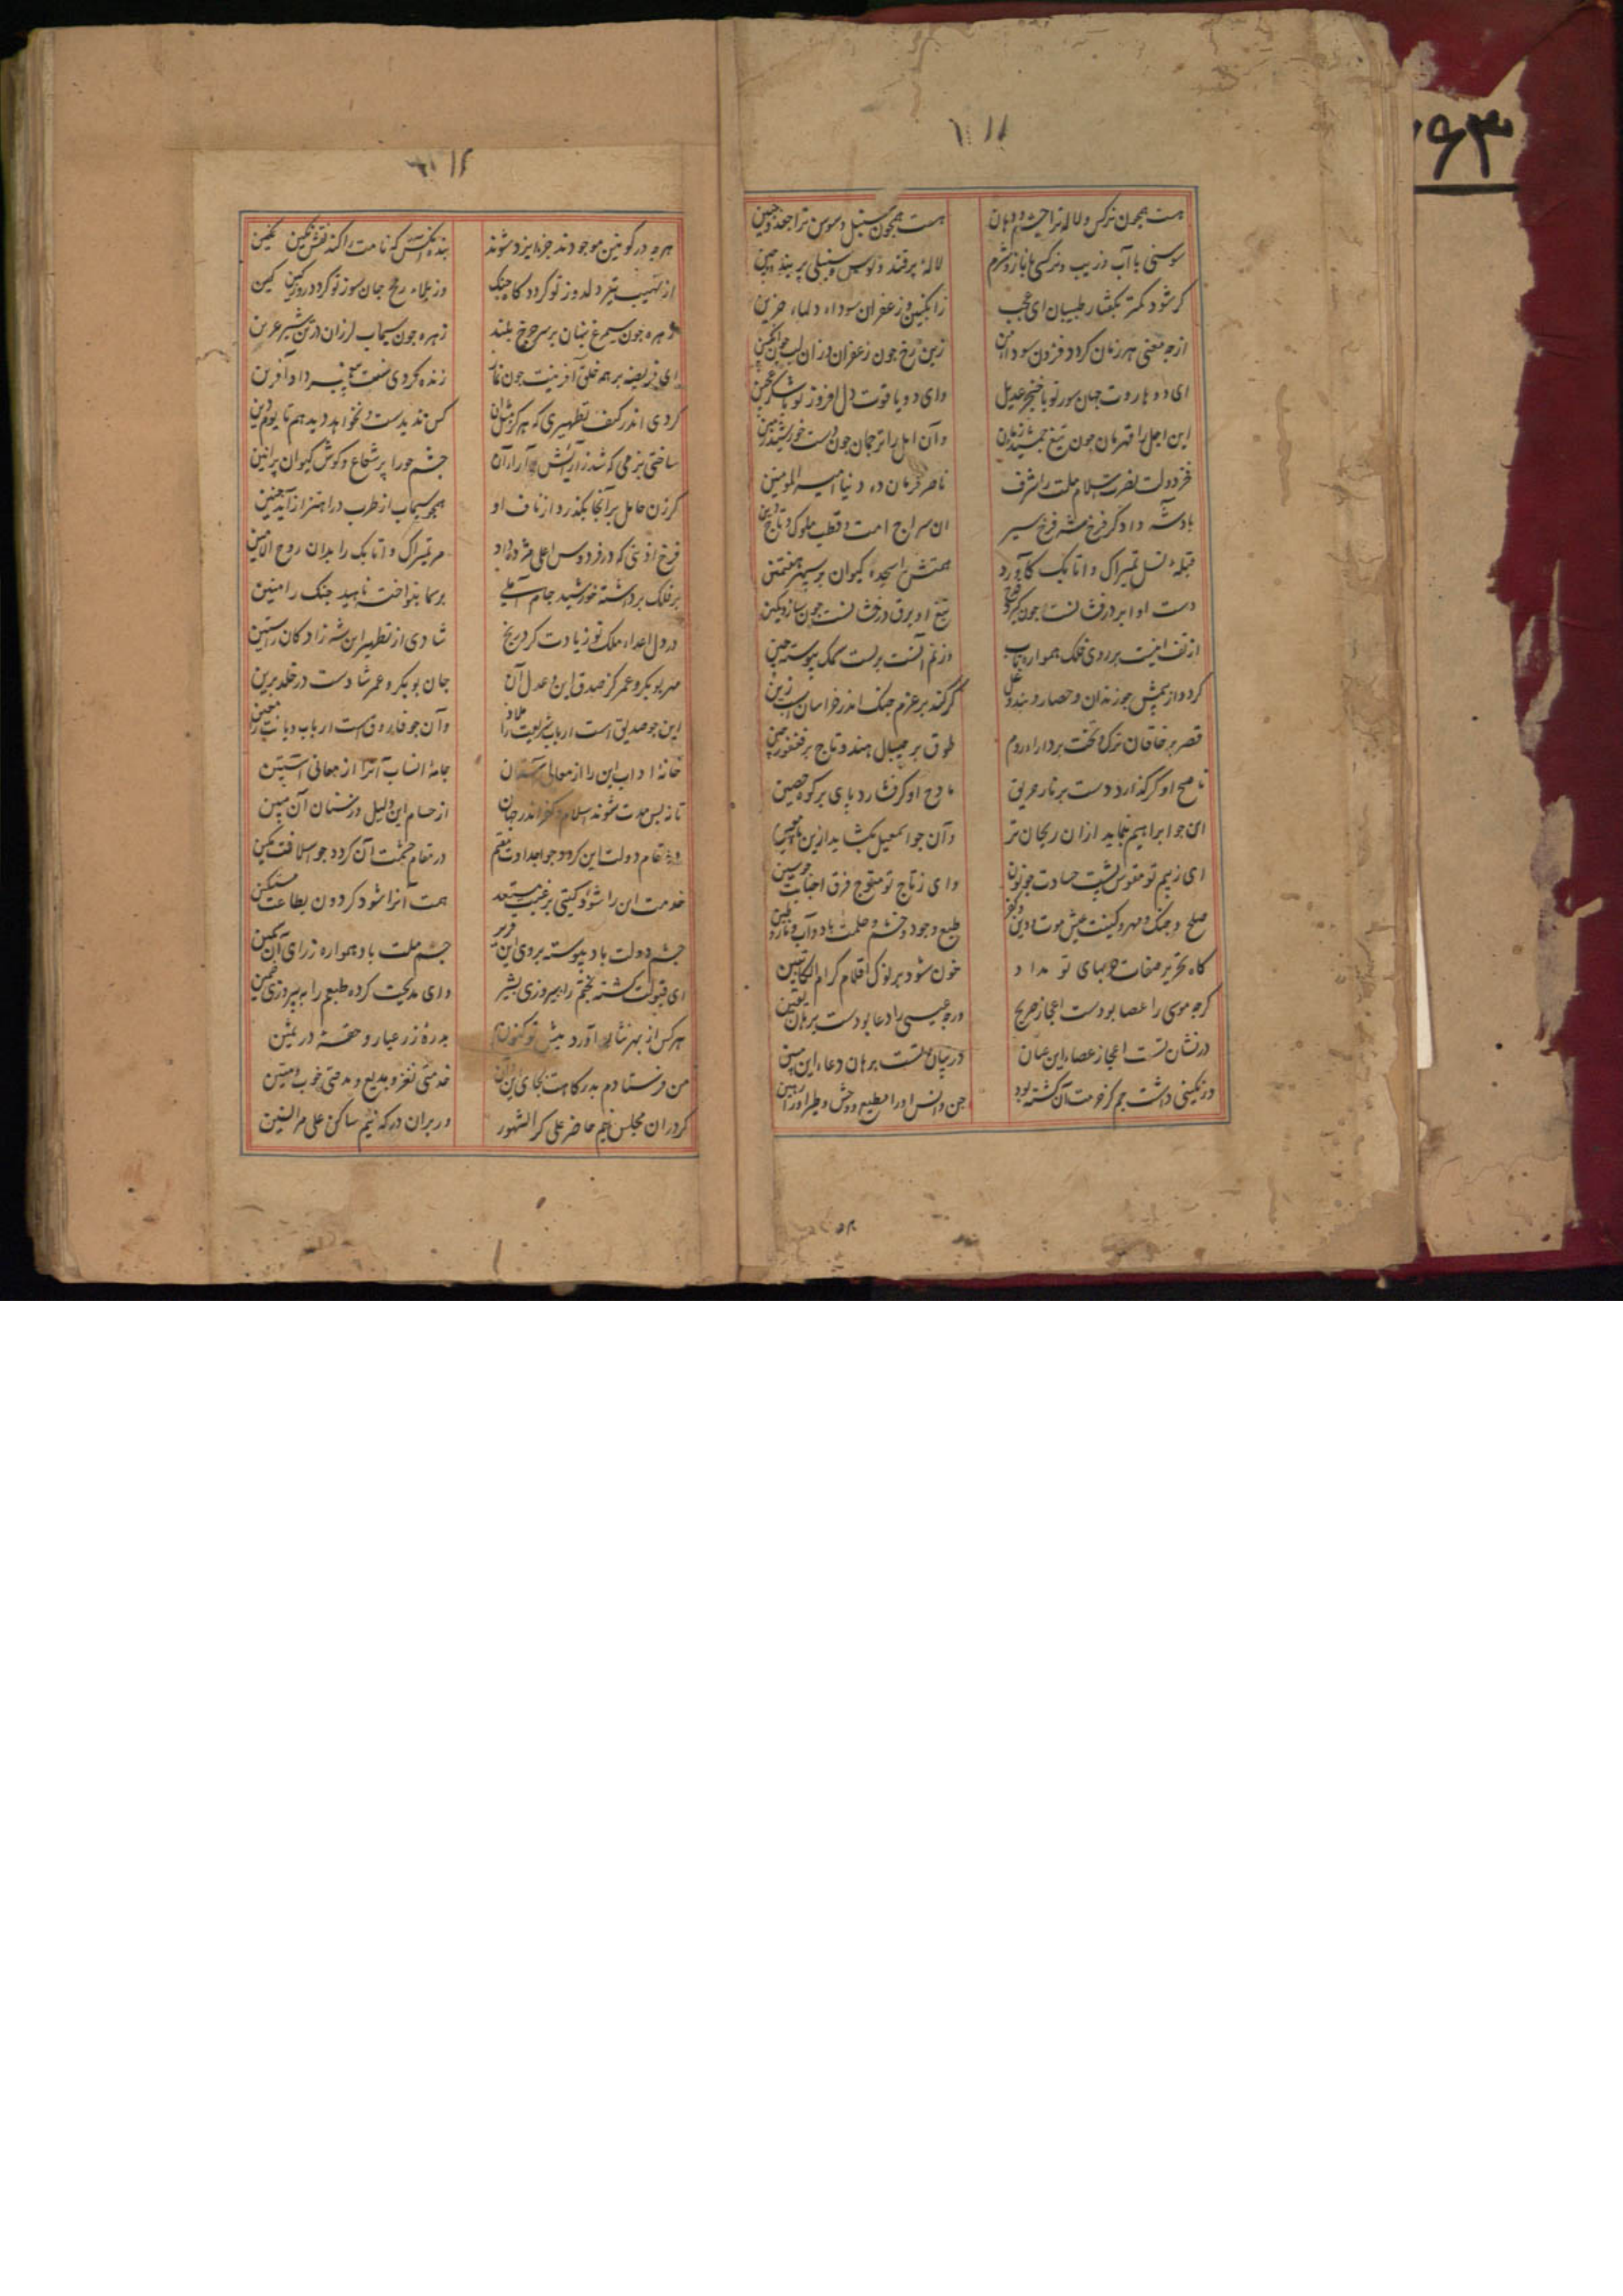 هست همچون نرکس و لاله ترا چشم و دهان
هست همچون سنبل و سوسن ترا جعد و جبین
سوسنی با آب و زیب و نرکسی با ناز و شرم
لالهٔ پر قند و نوش و سنبلی پر بند و چین
کر شود کمتر بکفتار طبیبان ای عجب
زانکبین و زعفران سوداء دلهاء حزین
از چه معنی هر زمان کردد فزون سوداء من
زین رخ چون زعفران وزان لب چون انکبین
ای دو هاروت جهان سوز تو با خنجر عدیل
وای دو یاقوت دل افروز تو با شکر عجین
این اجل را قهرمان چون تیغ جمشید زمان
وآن امل را ترجمان چون دست خورشید زمین
فخر دولت نصرت اسلام ملت را شرف
ناصر فرمان ده دنیا امیر المومنین
بادشه دادکر فرخ شه فرخ سیر
ان سراج امت و قطب ملوک و تاج دین
قبلهٔ نسل تمیراک و اتابک کآورد
همتش را سجده کیوان بر سپهر هفتمین
دست او ابر درفشانست جون کیرد قدح
تیغ او برق درخشانست جون سازد کمین
از تف اینست بر روی فلک همواره تاب
وز نم آنست بر پشت سمک پیوسته چین
کر کند بر عزم جنک اندر خراسان اسب زین
قصر بر خاقان ترک و تخت بر دارا روم
طوق بر جیبال هند و تاج بر فغفور چین
ناصح او کر کذارد دست بر نار حریق
مادح او کر فشارد بای بر کوه حصین
ان جو ابراهیم نماید ازان ریحان تر
وآن جو اسمعیل بکشاید ازین ماء معین
ای ز بیم تو مقوس پشت حسادت جو نون
وای ز تاج تو متوج فرق احبابت جو سین
صلح و جنک و مهر و کینت عیش و موت و دین و کفر
طبع وجود و خشم و حلمت باد و آب و نار و طین
کاه تحریر صفات حربهای تو مداد
خون شود بر نوک اقلام کرام الکاتبین
کرجه موسی را عصا بودست اعجاز صریح
ورجه عیسی را دعا بودست برهان یقین
در نشان تست اعجاز عصاء این عیان
در بیان تست برهان دعاء این مبین
در نکینی داشت جم کز خدمت آن کشته بود
جن و انس او را مطیع و وحش و طیر او را رهین
هرجه در کونین موجودند جز ایزد شوند
بنده آنکس که نامت را کند نقش نکین
از نهیب تیر دلدوز تو کردد کاه جنک
زهره جون سیماب لرزان در تن شیر عرین
ای فریضه بر همه خلق آفرینت جون نماز
زنده کردی سنت پیغمبر داد آفرین
کردی اندر کنف تطهیری که هرکز مثل آن
کس ندیدست و نخواهد دید هم تا یوم دین
ساختی بزمی که شد ز آرایش آن
چشم جوزا پر شعاع و کوش کیوان پر انین
کر زن حامل بر آنجا بکذرد از ناف او
همجو سیماب از طرب در اهتزاز آید جنین
فرخ اذنی که در فردوس اعلی مژده داد
مر تمیراک و اتابک را بدان روح الامین
بر فلک برداشته خورشید جام
بر سما بنواخت ناهید جنک رامتین
در دل اعداء ملک تو زیادت کرد رنج
شادی از تطهیر این شه زادکان راستین
مهر بوبکر و عمر کز صدق این و عدل آن
جان بوبکر و عمر شادست در خلد برین
این جو صدیق است ارباب شریعت را ملاذ
وآن جو فاروق است ارباب دیانت را معین
خانهٔ اداب این را از معالی آستان
جامهٔ انساب آنرا از معانی آستین
تا نه بس مدت شوند اسلام و کفر اندر جهان
از حسام این ذلیل و ز سنان آن مهین
در مقام دولت این کردد جو اجدادت مقیم
در مقام حشمت آن کردد جو اسلافت مکین
خدمت ان را شود کیتی برغبت مستعد
همت آنرا شود کردون بطاعت مستکین
چشم دولت باد پیوسته بروی این قریر
جسم ملت باد همواره ز رای آن سمین
ای قبولت کشته بختم را بپیروزی بشیر
وای مدیحت کرده طبعم را به پیروزی ضمین
هر کس از بهر نثار آورد پیش تو کنون
بدرهٔ زر عیار و حقهٔ در ثمین
من فرستادم بدرکاهت بجای این و آن
خدمتی نغز و بدیع و مدحتی خوب و متین
کر دران مجلس نیم حاضر علی کر الشهور
ور بران درکه نیم ساکن علی مر السنین